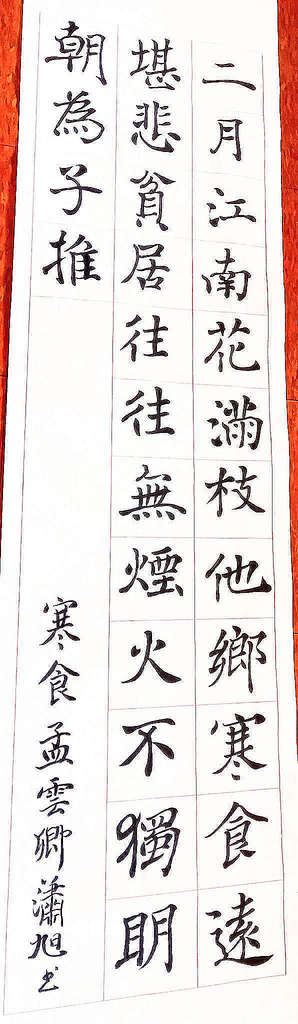 二月江南花滿枝他鄉寒食遠
堪悲貧居往往無煙火不獨明
朝為子推
寒食孟雲卿瀟旭书